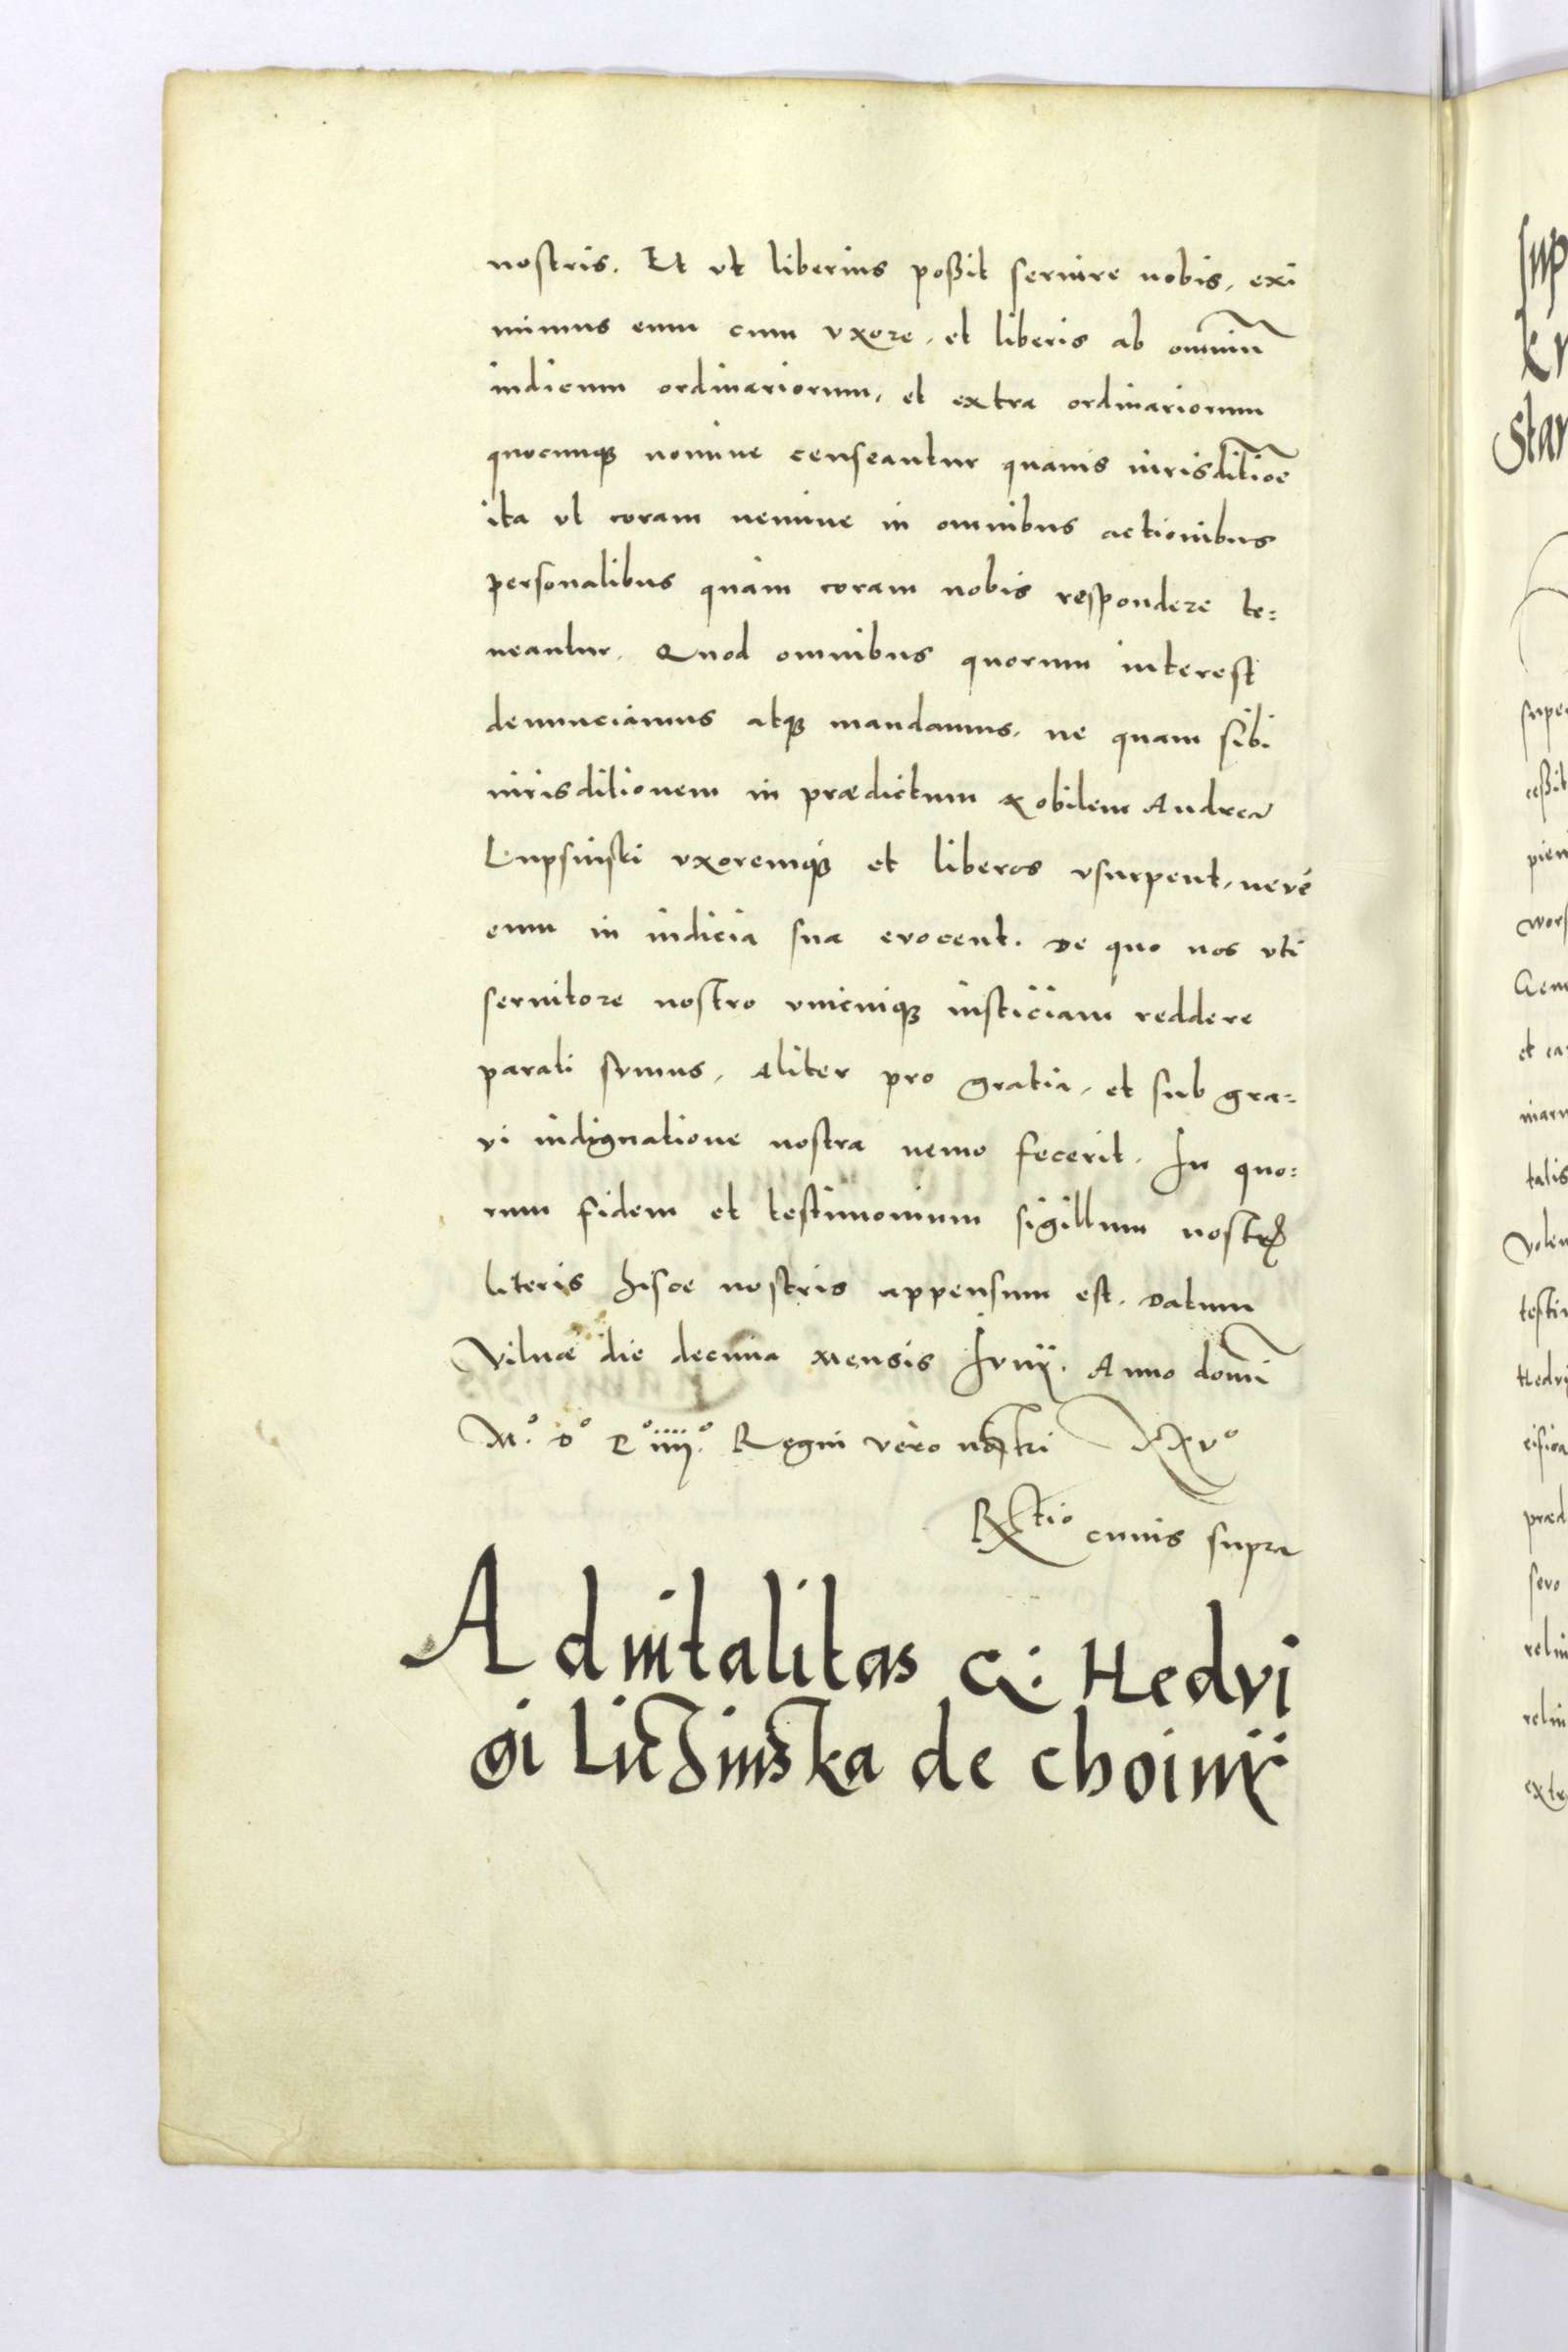 nostris. Et vt liberius poßit seruire nobis, exi
mimus eum cum vxore, et liberis ab omniũ
iudicum ordinariorum, et extra ordinariorum
quocunq; nomine censeantur quauis iurisditiõe
ita vt coram nemine in omnibus actionibus
personalibus quàm coram nobis respondere te=
neantur. Quod omnibus quorum interest
denunciamus atq; mandamus, ne quam sibi
iurisditionem in prædictum Nobilem Andreã
Lupsinski vxoremq; et liberos vsurpent, nevè
eum in iudicia sua evocent. De quo nos vti
seruitore nostro vnicuiq; iusticiam reddere
parati sumus, aliter pro gratia, et sub gra=
vi indignatione nostra nemo fecerit. In quo=
rum fidem et testimonium sigillum nostrũ
literis hisce nostris appensum est. Datum
Vilnæ die decima Mensis Junij. Anno domĩ
M.º Dº Lº iiijº. Regni vero nostri XXVº
Rtio cuius supra
Aduitalitas G. Hedvi
gi de choinij
sup
k
star
supe
ceßit
wors
Gen
et ea
talis
volen
Hedvi
præd
extr